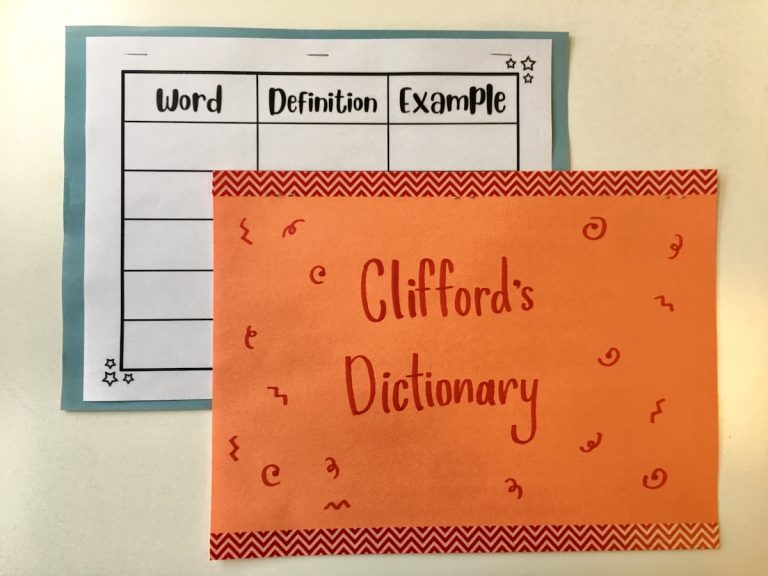 Word Definition Example
Clifford's
Dictionary